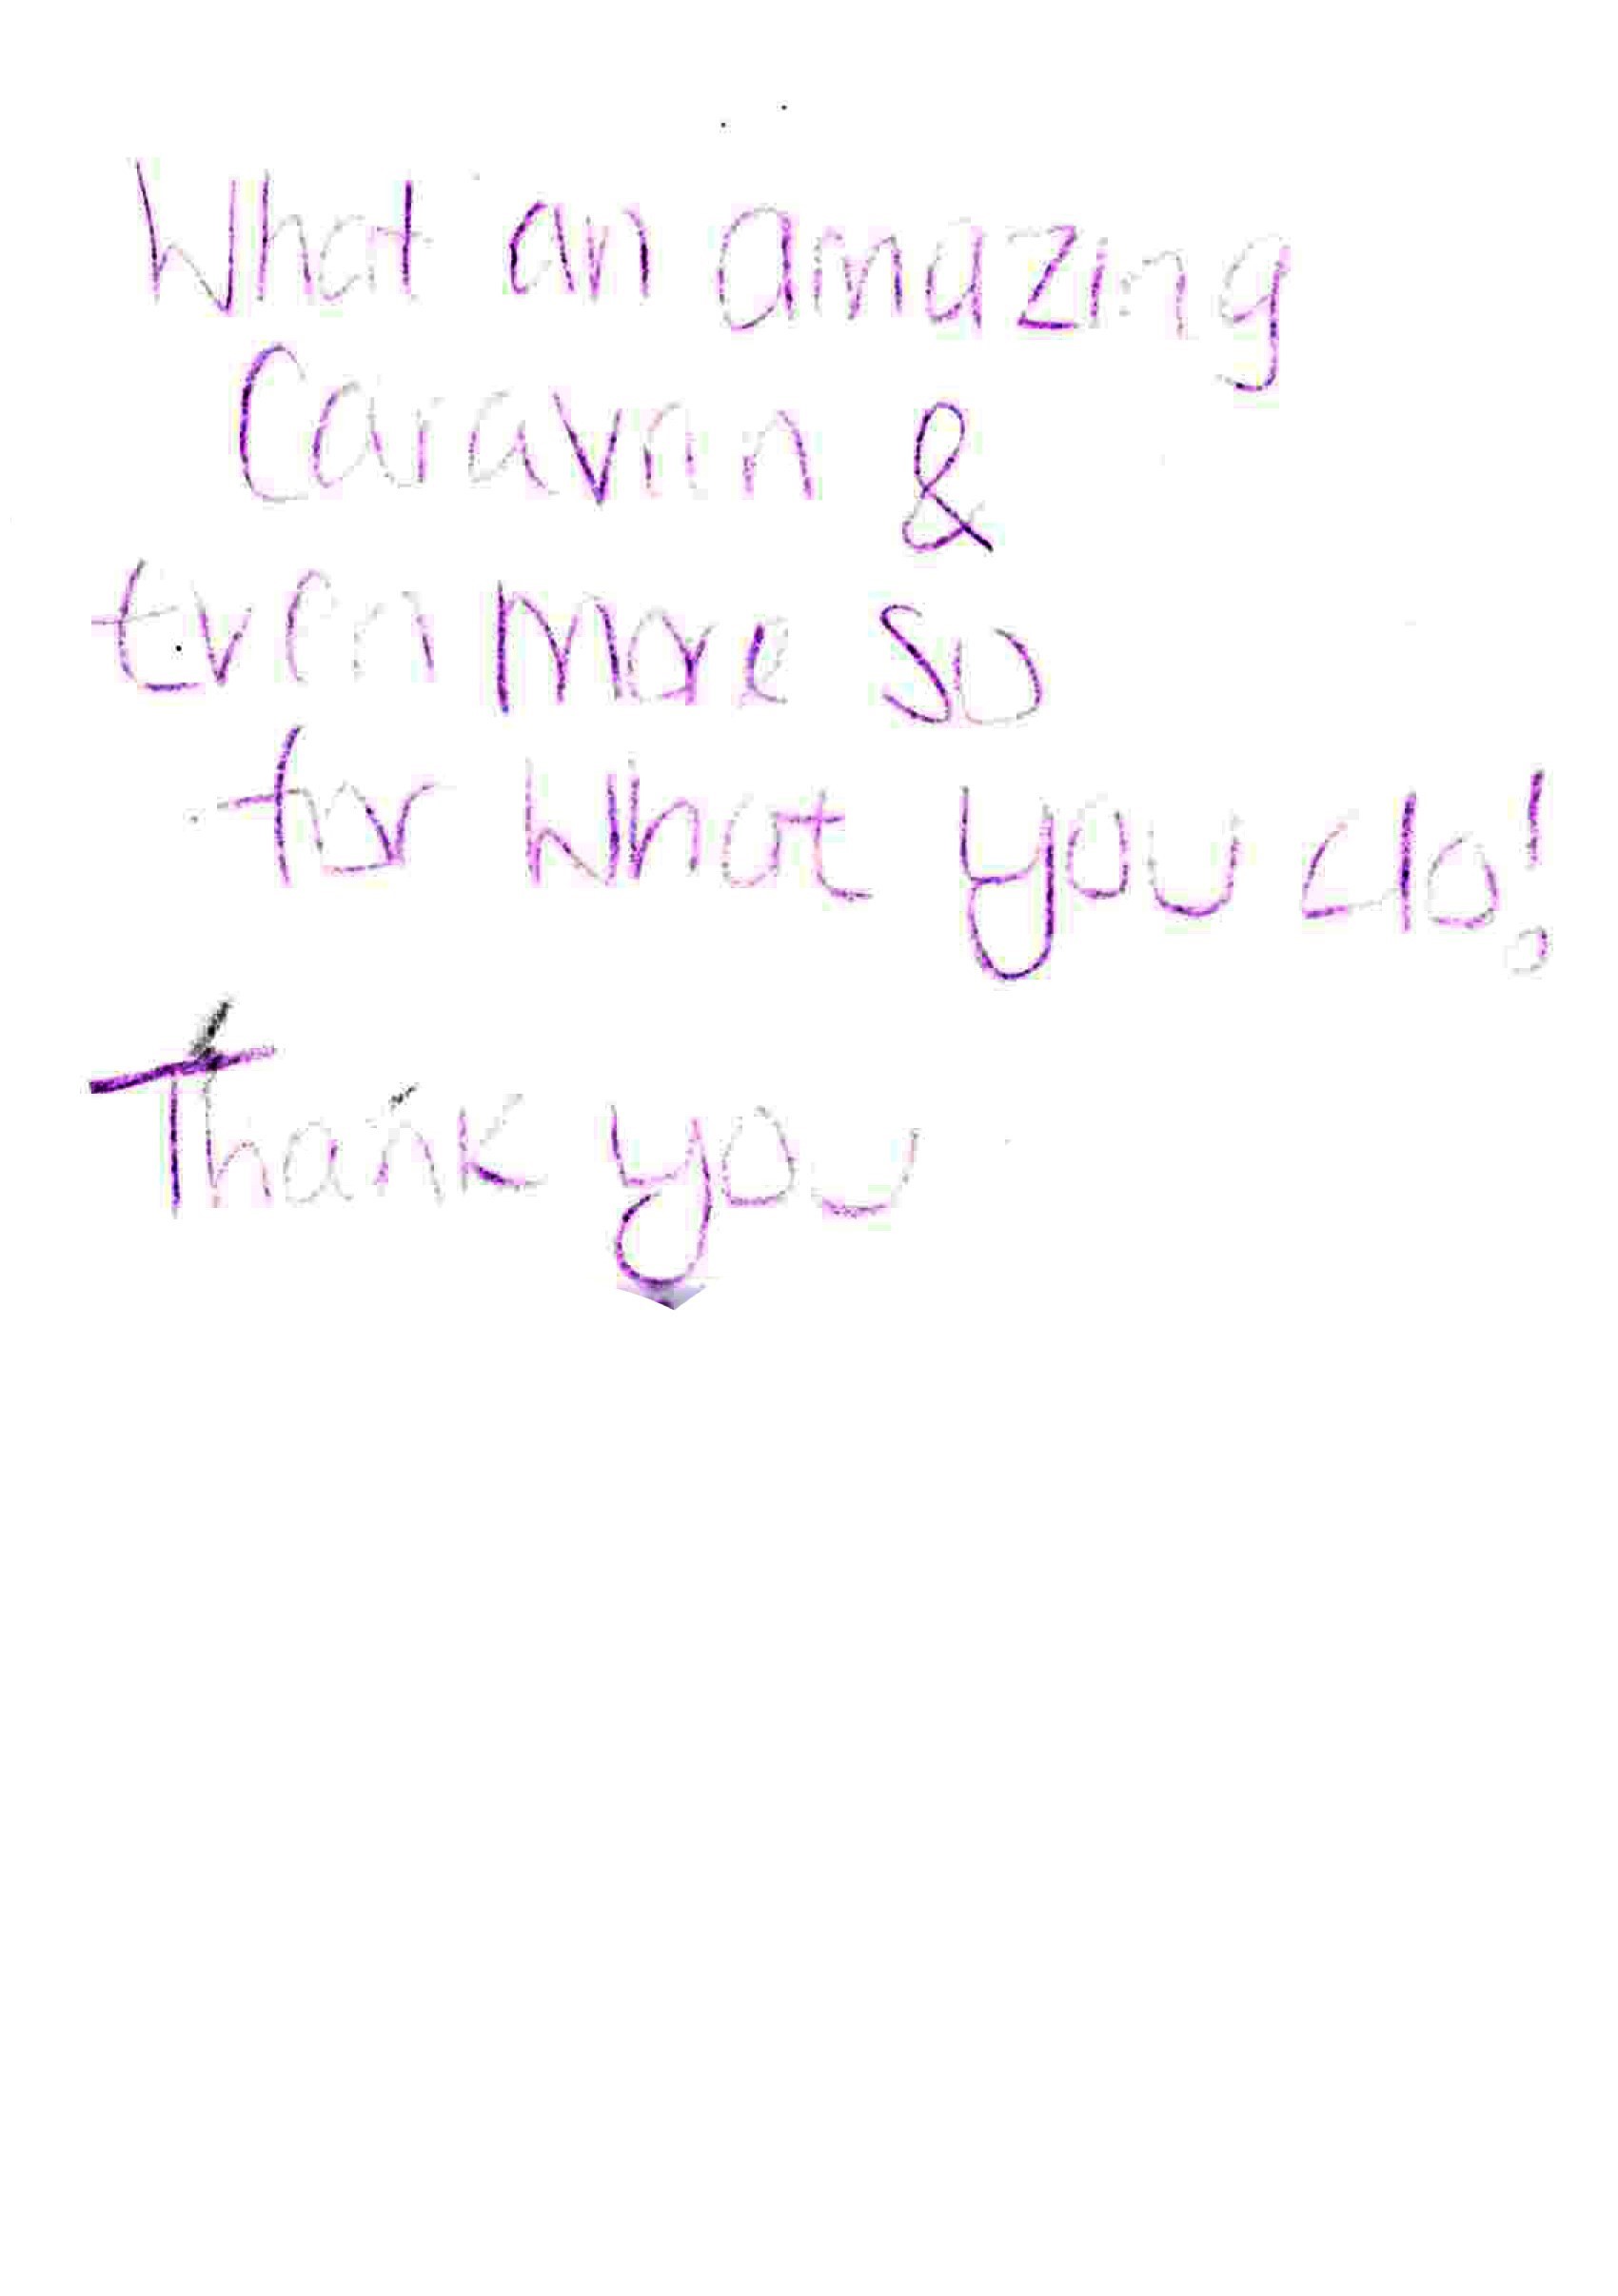 What an amazing
Caravan &
even more so
for what you do!
Thank you